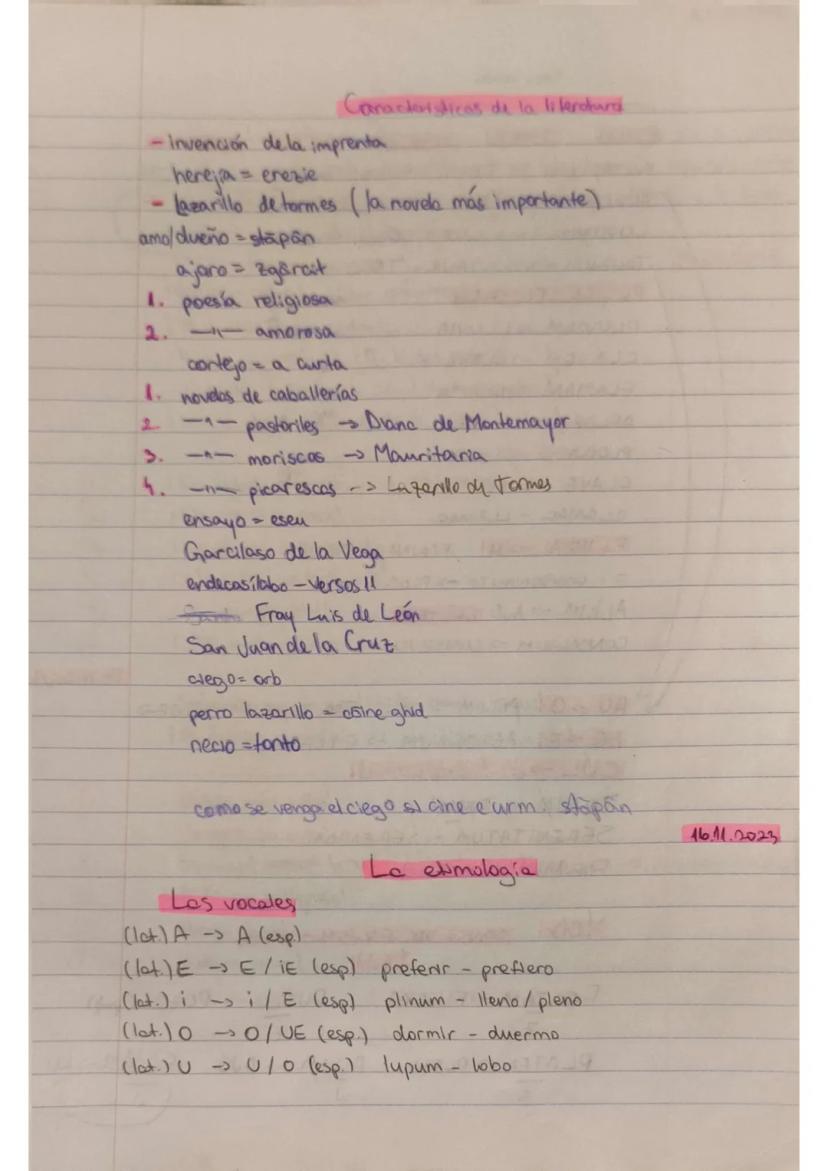 Características de la literatura
- invención de la imprenta
hereja = erezie
- lazarillo de tormes (la novela más importante)
amo/dueño = stăpân
ajaro = zgârcit
1. poesía religiosa
2. —"— amorosa
cortejo = a curta
1. novelas de caballerías
2. —"— pastoriles → Diana de Montemayor
3. —"— moriscas → Mauritaria
4. —"— picarescas -> Lazarillo de Tormes
ensayo = eseu
Garcilaso de la Vega
endecasílabo - versos 11
Fray Luis de León
San Juan de la Cruz
ciego = orb
perro lazarillo = câine ghid
necio = tonto
como se venga el ciego si cine e urm. stăpân
16.11.2023
La etimología
Las vocales
(lat.) A -> A (esp)
(lat.) E -> E / iE (esp) preferir - prefiero
(lat.) i -> i / E (esp) plinum - lleno / pleno
(lat.) O -> O / UE (esp.) dormir - duermo
(lat.) U -> U / O (esp.) lupum - lobo